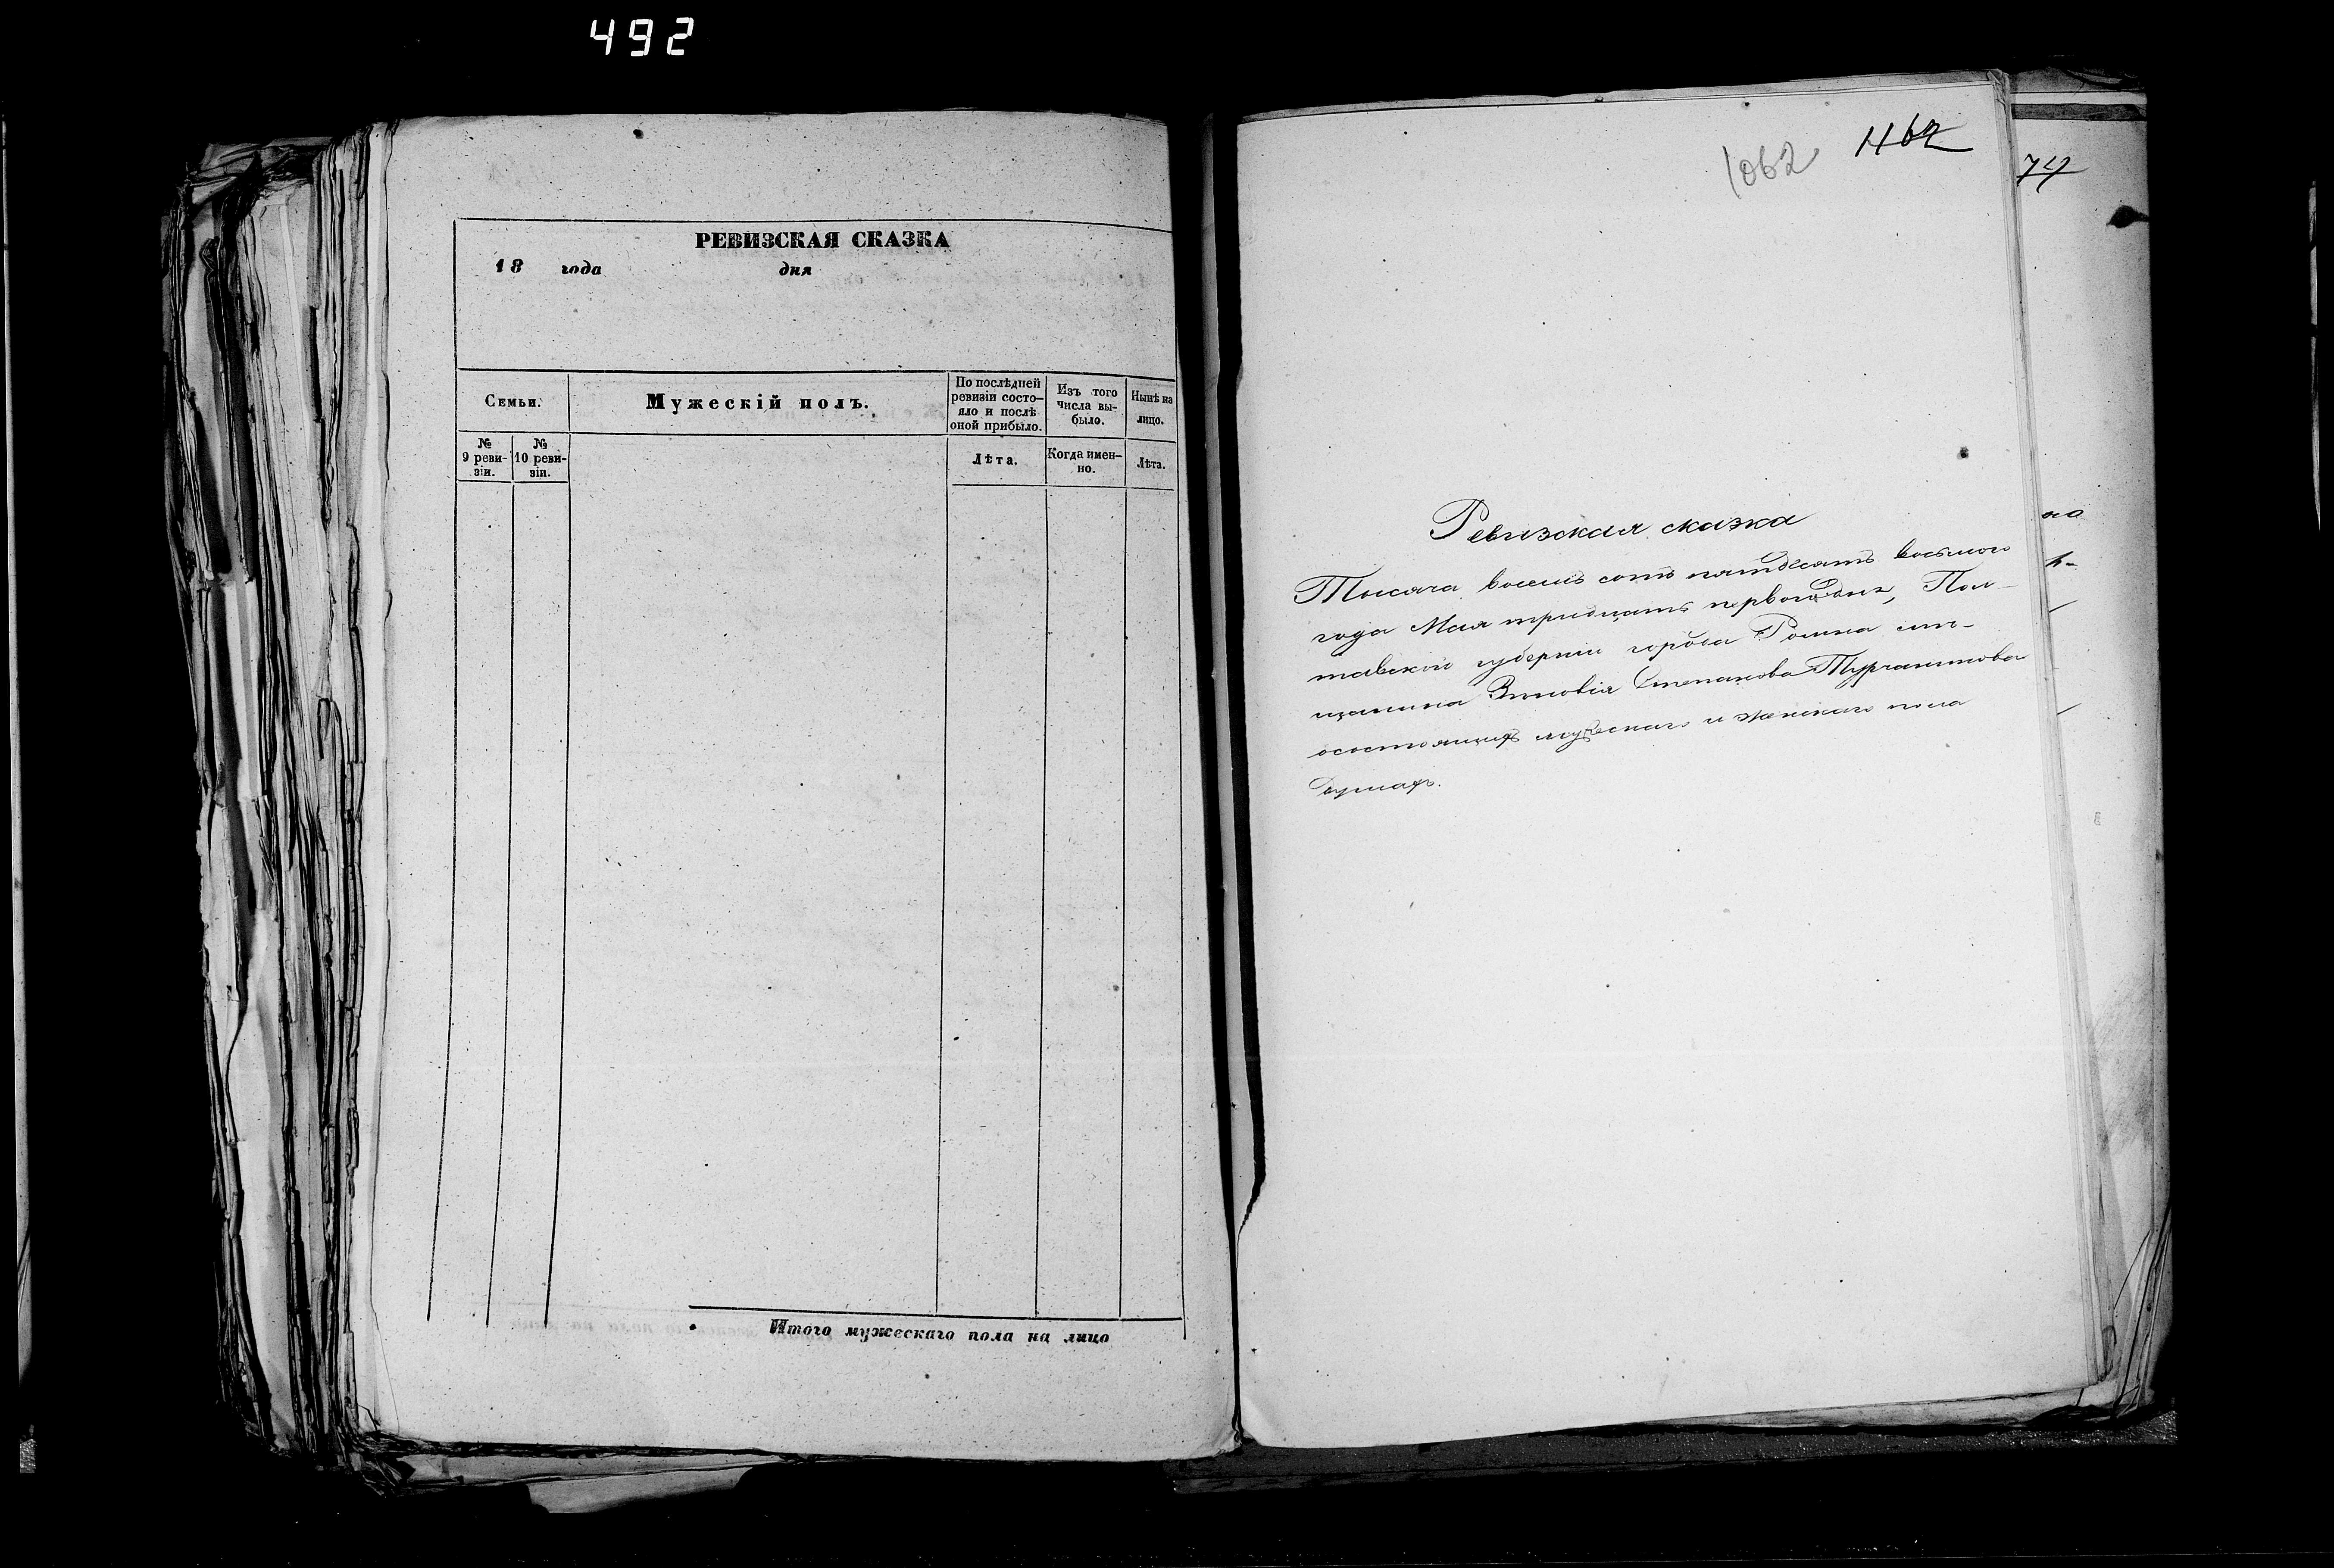 492
РЕВИЗСКАЯ СКАЗКА
18 года дня
Семьи.
Мужескій полъ.
По послѣдней ревизіи состо-
яло и послѣ оной прибыло.
Изъ того числа вы-
было.
Нынѣ на лицо.
№ 9 реви-
зіи.
№ 10 реви-
зіи.
Лѣта.
Когда имен-
но.
Лѣта.
Итого мужескаго пола на лицо
1062
1162
Ревизская сказка
Тысяча восемь сотъ пятдесятъ восьмого
года Мая тридцать первого дня, Пол-
тавской губерніи города Ромна мѣ-
щанина Зиновія Степанова Турчанинова
осостоящихъ мужескаго и женскаго пола
душахъ.
74
на